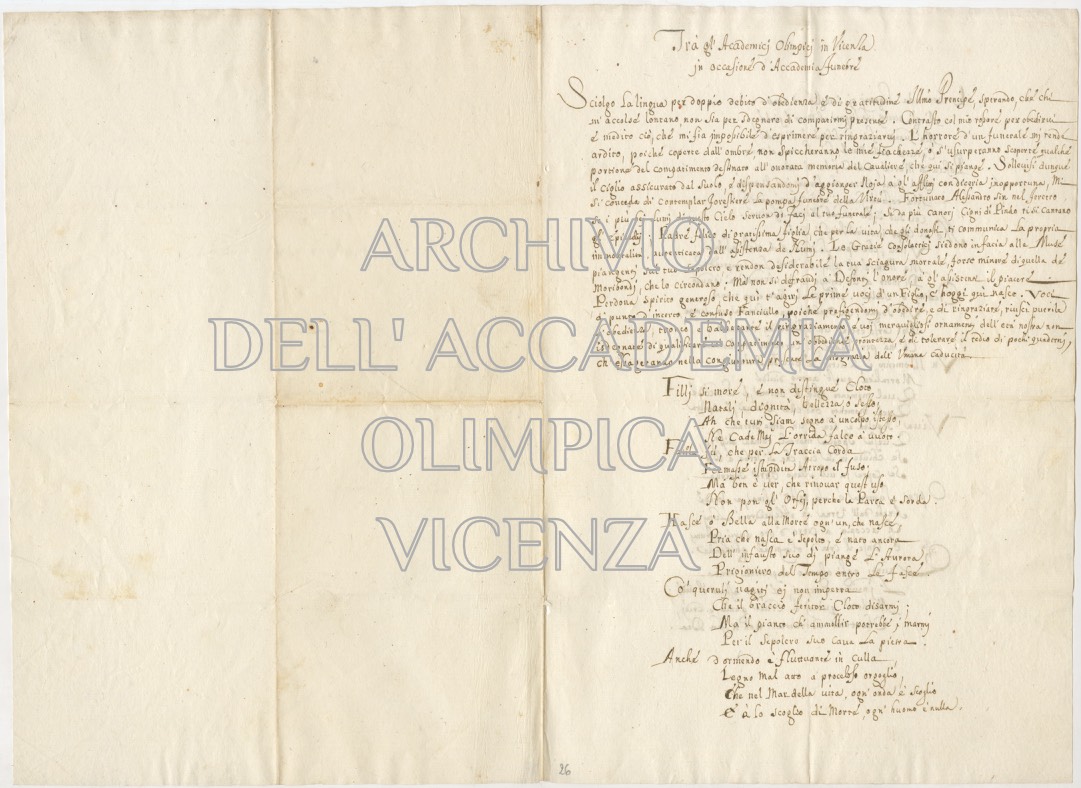 Trà gl' Academici Olimpici in Vicenza
in occasione d'Accademia funebre
Sciolgo la lingua per doppio debito d'obedienza, e di gratitudine Illmo Prencipe, sperando, che chi
m'accolse lontano, non sia per sdegnare di compatirmi presente. Contrasto col mio rossore per obedirvi
e medito ciò, che mi sia impossibile d'esprimere per ringraziarvi. L'horrore d'un funerale mi rende
ardito, poiché coperte dall'ombre, non spiccheranno le mie fiachezze, ò s'usurperanno scoperte qualche
portione del compatimento destinato all'onorata memoria del Cavaliere, che qui si piange. Sollevisi dunque
il ciglio assicurato dal Suolo, e dispensandomi d'aggionger Noja a gl'afflitti con diceria inopportuna, Mi
si conceda di contemplar forestiere la pompa funebre della Virtù. Fortunato Alessandro sin nel feretro
se i più bei lumi di questo Cielo servon di faci al tuo funerale; Se da più canori Cigni di Pindo ti si cantano
gl'epicedij. Padre felice di gratissima figlia che per la vita, che gli donasti, ti communica la propria
immortalità, autenticata dall'assistenza de Numi. Le Grazie consolatrici siedono in facia alle Muse
piangenti sul tuo sepolcro e rendon desiderabile la tua sciagura mortale, forse minore di quella de
Moribondi, che lo circondano. Ma non si defraudi à Defonti l'onore, à gl'assistenti il piacere
Perdona spirito generoso, che qui t'aggiri le prime voci d'un Figlio, ch'hoggi qui nasce. Voci
di punto, incerto, e confuso Fanciullo, poiché professandomi d'obedire, e di ringraziare, riuscì puerile
l'obedienza, tronco, e balbettante il ringraziamento e voi meravigliosi ornamenti dell'età nostra non
isdegnate di qualificar di compatimento un'obediente prontezza, e di tolerare il tedio di pochi quaderni,
ch'esagerando nella congiuntura presente la disgrazia dell'umana caducità
Filli si more, e non distingue Cloto
Natali, dignità, bellezza, ò sesso;
Ah che tutti siam segno à un colpo istesso,
Nè cade mai l'orrida falce à vuoto.
sù, che per la Traccia Corda
Fermasse istupidita Atropo il fuso;
Mà ben è ver, che rinovar quest'uso
Non pon gl'Orfei, perche la Parca è sorda.
Nasce ò Bella alla Morte ogn'un, che nasce,
Pria che nasca è sepolto, e nato ancora
Dell'infausto suo dì piange l'Aurora;
Prigioniero del Tempo entro le fasce.
Co' queruli vagiti ei non impetra
Che il braccio feritor Cloto disarmi;
Ma il pianto ch'ammollir potrebbe i marmi
Per il sepolcro suo cava la pietra.
Anche dormendo è fluttuante in culla
Legno mal atto a procelloso orgoglio,
Che nel Mar della vita, ogn'onda è scoglio
E à lo scoglio di Morte, ogn'huomo è nulla.
26
ARCHIVIO
DELL'ACCADEMIA
OLIMPICA
VICENZA